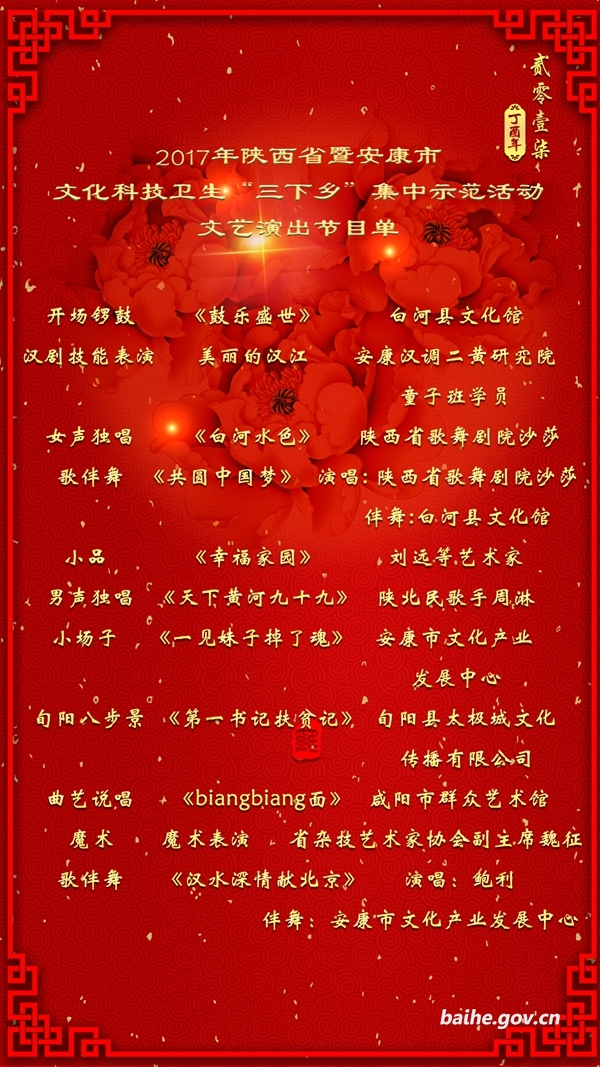 贰零壹柒
丁酉年
2017年陕西省暨安康市
文化科技卫生“三下乡”集中示范活动
文艺演出节目单
开场锣鼓 《鼓乐盛世》 白河县文化馆
汉剧技能表演 美丽的汉江 安康汉调二黄研究院
童子班学员
女声独唱 《白河水色》 陕西省歌舞剧院沙莎
歌伴舞 《共圆中国梦》 演唱:陕西省歌舞剧院沙莎
伴舞:白河县文化馆
小品 《幸福家园》 刘远等艺术家
男声独唱 《天下黄河九十九》 陕北民歌手周淋
小场子 《一见妹子掉了魂》 安康市文化产业
发展中心
旬阳八步景 《第一书记扶贫记》 旬阳县太极城文化
传播有限公司
曲艺说唱 《biangbiang面》 咸阳市群众艺术馆
魔术 魔术表演 省杂技艺术家协会副主席魏征
歌伴舞 《汉水深情献北京》 演唱：鲍利
伴舞：安康市文化产业发展中心
baihe.gov.cn